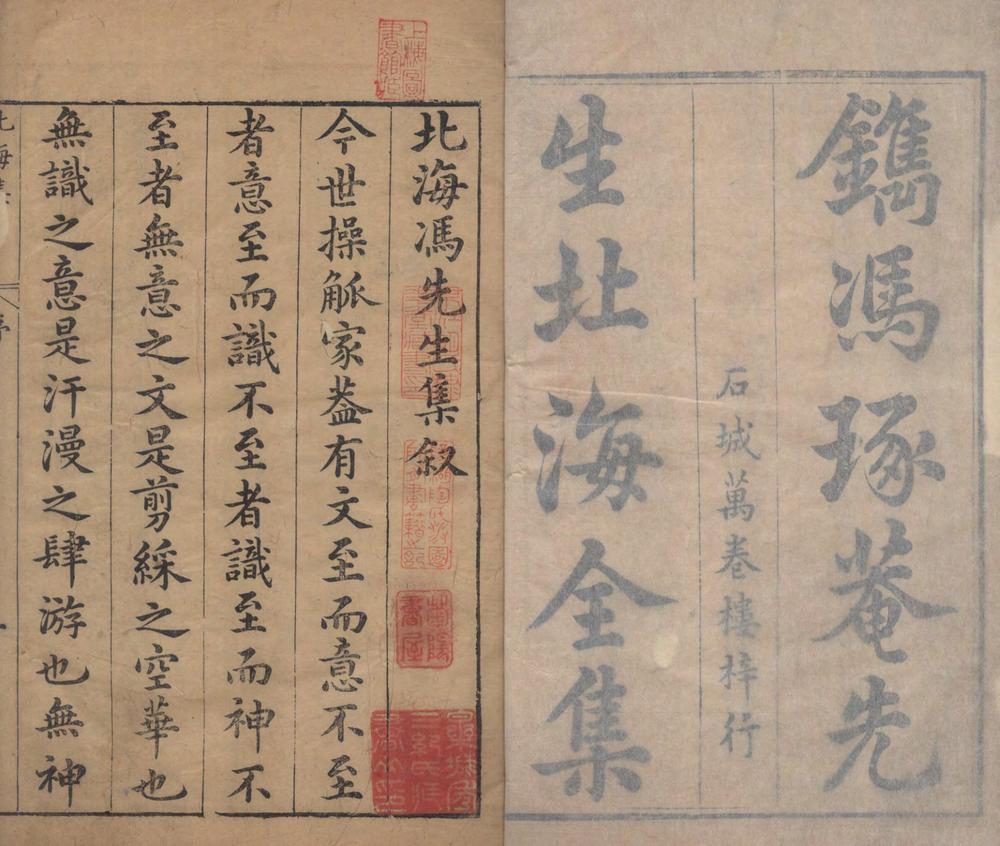 鐫馮琢菴先
石城萬卷樓梓行
生北海全集
北海馮先生集叙
今世操觚家葢有文至而意不至
者意至而識不至者識至而神不
至者無意之文是剪綵之空華也
無識之意是汗漫之肆游也無神
上海圖書館藏